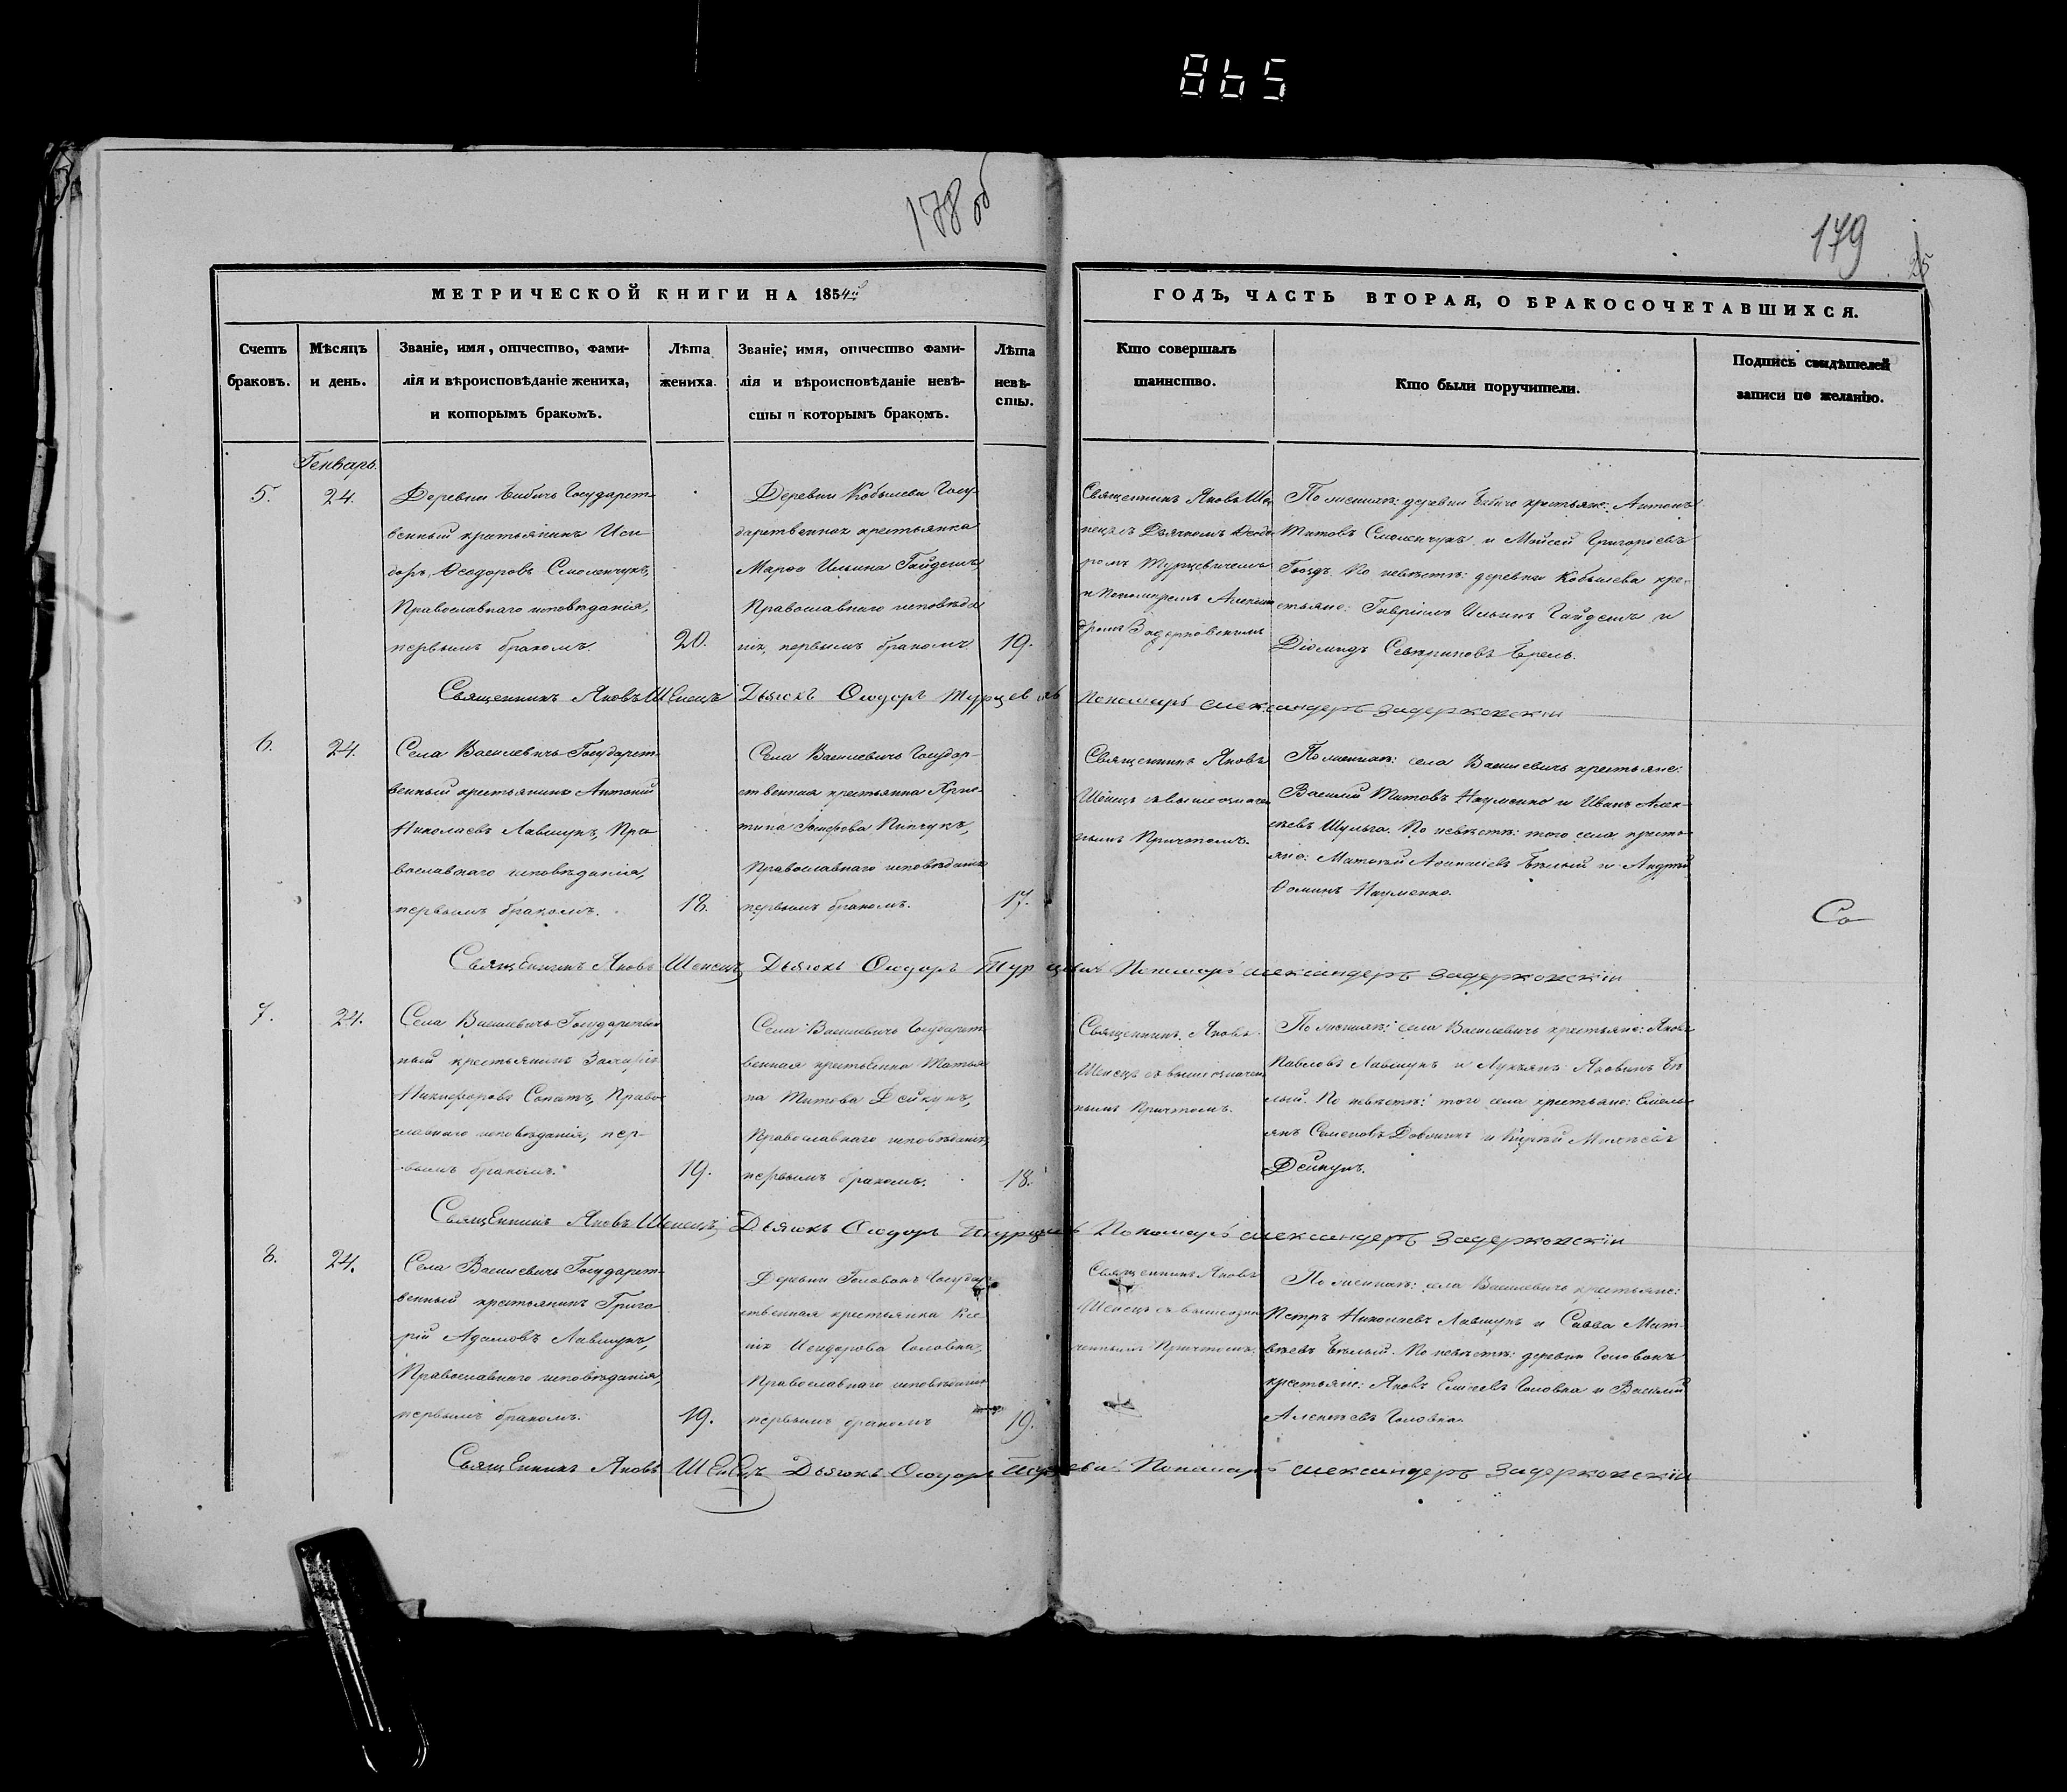 865
178 об
179
25
МЕТРИЧЕСКОЙ КНИГИ НА 1854й
ГОДЪ, ЧАСТЬ ВТОРАЯ, О БРАКОСОЧЕТАВШИХСЯ.
Счетъ
браковъ.
Мѣсяцъ
и день.
Званіе, имя, отчество, фами-
лія и вѣроисповѣданіе жениха,
и которымъ бракомъ.
Лѣта
жениха.
Званіе, имя, отчество фами-
лія и вѣроисповѣданіе невѣ-
сты и которымъ бракомъ.
Лѣта
невѣ-
сты.
Кто совершалъ
таинство.
Кто были поручители.
Подпись свидѣтелей
записи по желанію.
Генварь.
5.
24.
Деревни Бабичъ Государст-
венный крестьянинъ Иси-
доръ Ѳеодоровъ Смоленчукъ,
Православнаго исповѣданія,
первымъ бракомъ.
20.
Деревни Кобылева Госу-
дарственная крестьянка
Марѳа Ильина Гайдешъ,
Православнаго исповѣда
нія, первымъ бракомъ.
19.
Священникъ Яковъ Ше
пецъ съ Дьячкомъ Ѳеодо
ромъ Турцевичемъ
и Пономаремъ Алексан
дромъ Задерковскимъ
По женихѣ: деревни Бабичъ крестьяне: Антонъ
Титовъ Смоленчукъ и Моисей Григоріевъ
Гвоздъ. По невѣстѣ: деревни Кобылева кре-
стьяне: Гавріилъ Ильинъ Гайдешъ и
Діомидъ Севериновъ Брель.
Священникъ Яковъ Шепецъ Дьячокъ Ѳеодоръ Турцевичъ Пономарь Александеръ Задерковскіи
6.
24.
Села Василевичъ Государст-
венный крестьянинъ Антоній
Николаевъ Лавшукъ, Пра
вославнаго исповѣданія,
первымъ бракомъ.
18.
Села Василевичъ Государ-
ственная крестьянка Хрис-
тина Пинчукъ,
Православнаго исповѣданія
первымъ бракомъ.
17.
Священникъ Яковъ
Шепецъ съ вышеозначен
нымъ Причтомъ.
По женихѣ: села Василевичъ крестьяне:
Василій Титовъ Науменко и Иванъ Алек-
сѣевъ Шульга. По невѣстѣ: того села кресть-
яне: Матвѣй Аѳанасіевъ Бѣлый и Андрей
Ѳоминъ Науменко.
Со
Священникъ Яковъ Шепецъ, Дьячокъ Ѳеодоръ Турцевичъ Пономарь Александеръ Задерковскіи
7.
24.
Села Василевичъ Государствен
ный крестьянинъ Захарій
Никифоровъ Сопотъ, Право
славнаго исповѣданія, пер-
вымъ бракомъ.
19.
Села Василевичъ Государст-
венная крестьянка Татья
на Титова Дейкунъ,
Православнаго исповѣданія,
первымъ бракомъ.
18.
Священникъ Яковъ
Шепецъ съ вышеозначен
нымъ Причтомъ.
По женихѣ: села Василевичъ крестьяне: Яковъ
Павловъ Лавшукъ и Лукьянъ Яковинъ Бѣ
лый. По невѣстѣ: того села крестьяне: Емель
янъ Семеновъ и
Дейкунъ.
Священникъ Яковъ Шепецъ, Дьячокъ Ѳеодоръ Турцевичъ Пономарь Александеръ Задерковскіи
8.
24.
Села Василевичъ Государст-
венный крестьянинъ Григо
рій Адамовъ Лавшукъ,
Православнаго исповѣданія,
первымъ бракомъ.
19.
Деревни Головокъ Государ-
ственная крестьянка Ксе-
нія Исидорова Головка,
Православнаго исповѣданія
первымъ бракомъ
19.
Священникъ Яковъ
Шепецъ съ вышеозна
ченнымъ Причтомъ.
По женихѣ: села Василевичъ крестьяне:
Петръ Николаевъ Лавшукъ и Савва Мат-
вѣевъ Бѣлый. По невѣстѣ: деревни Головокъ
крестьяне: Яковъ Головка и Василій
Алексѣевъ Головка.
Священникъ Яковъ Шепецъ Дьячокъ Ѳеодоръ Турцевичъ Пономарь Александеръ Задерковскіи